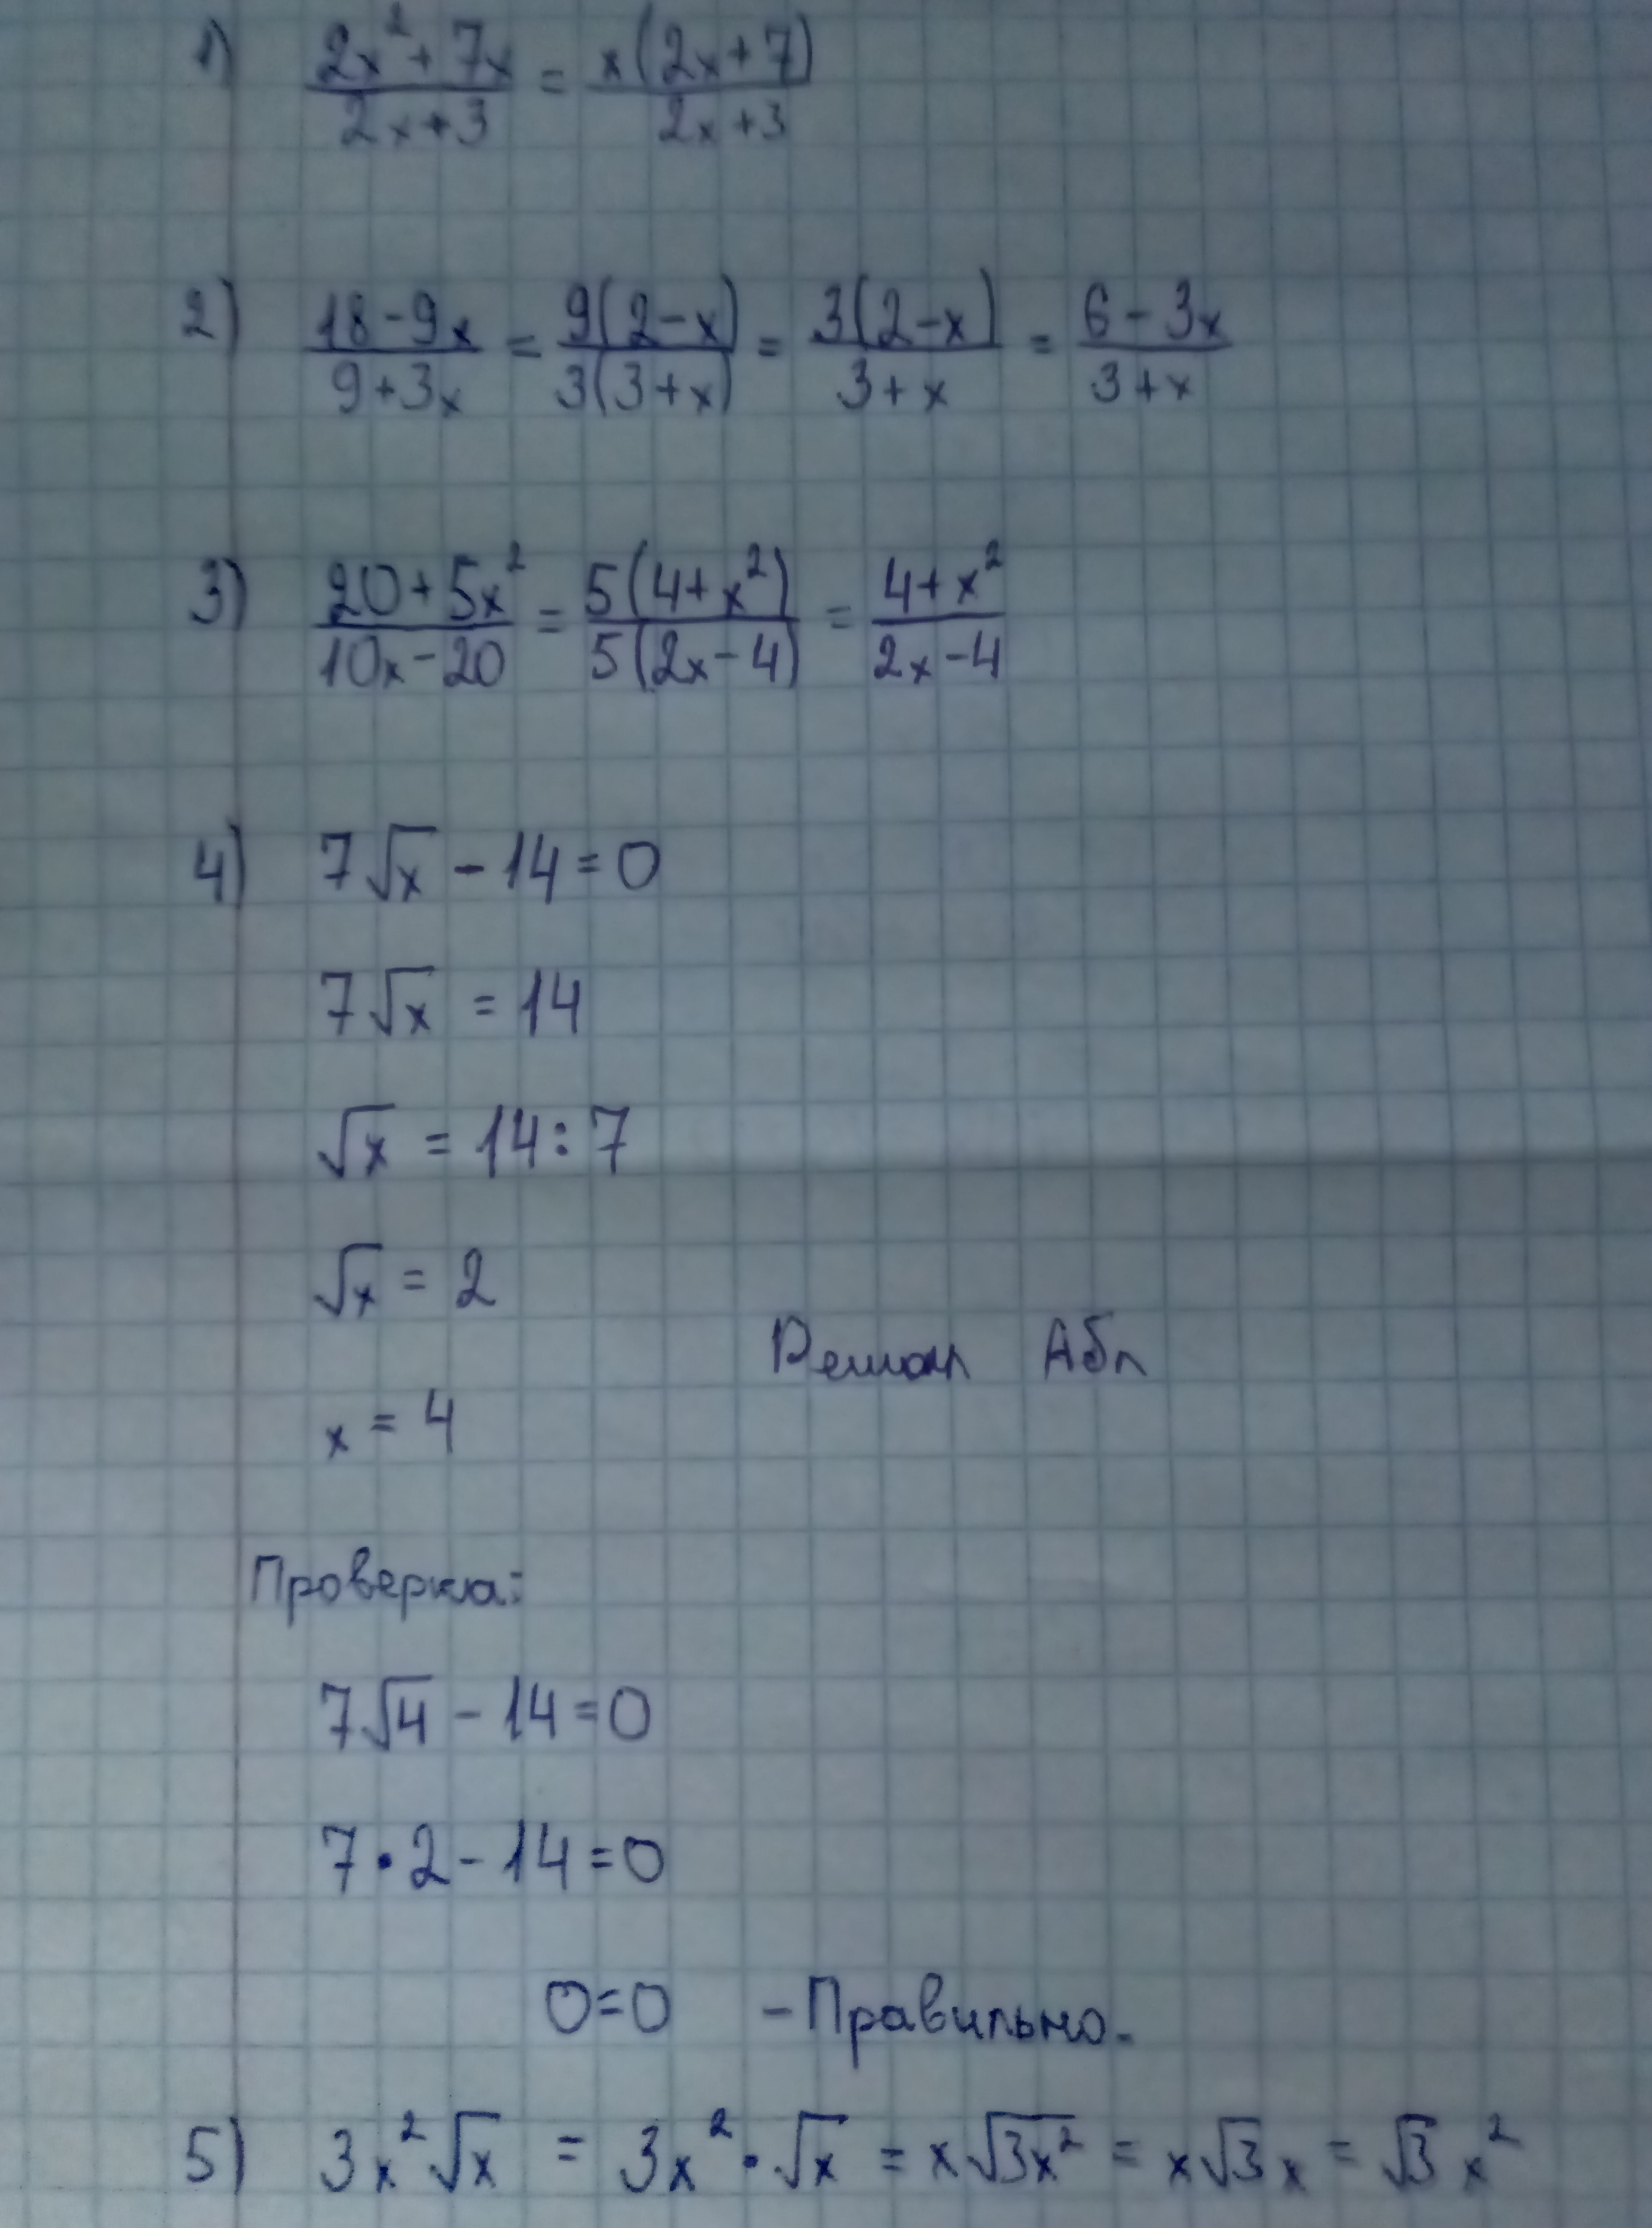 1) (2x²+7x)/(2x+3) = x(2x+7)/(2x+3)
2) (18-9x)/(9+3x) = 9(2-x)/3(3+x) = 3(2-x)/(3+x) = (6-3x)/(3+x)
3) (20+5x²)/(10x-20) = 5(4+x²)/5(2x-4) = (4+x²)/(2x-4)
4) 7√x - 14 = 0
7√x = 14
√x = 14:7
√x = 2
Решал
x = 4
Проверка:
7√4 - 14 = 0
7·2 - 14 = 0
0=0 - Правильно.
5) 3x²√x = 3x²·√x = x√3x² = x√3x = √3x²